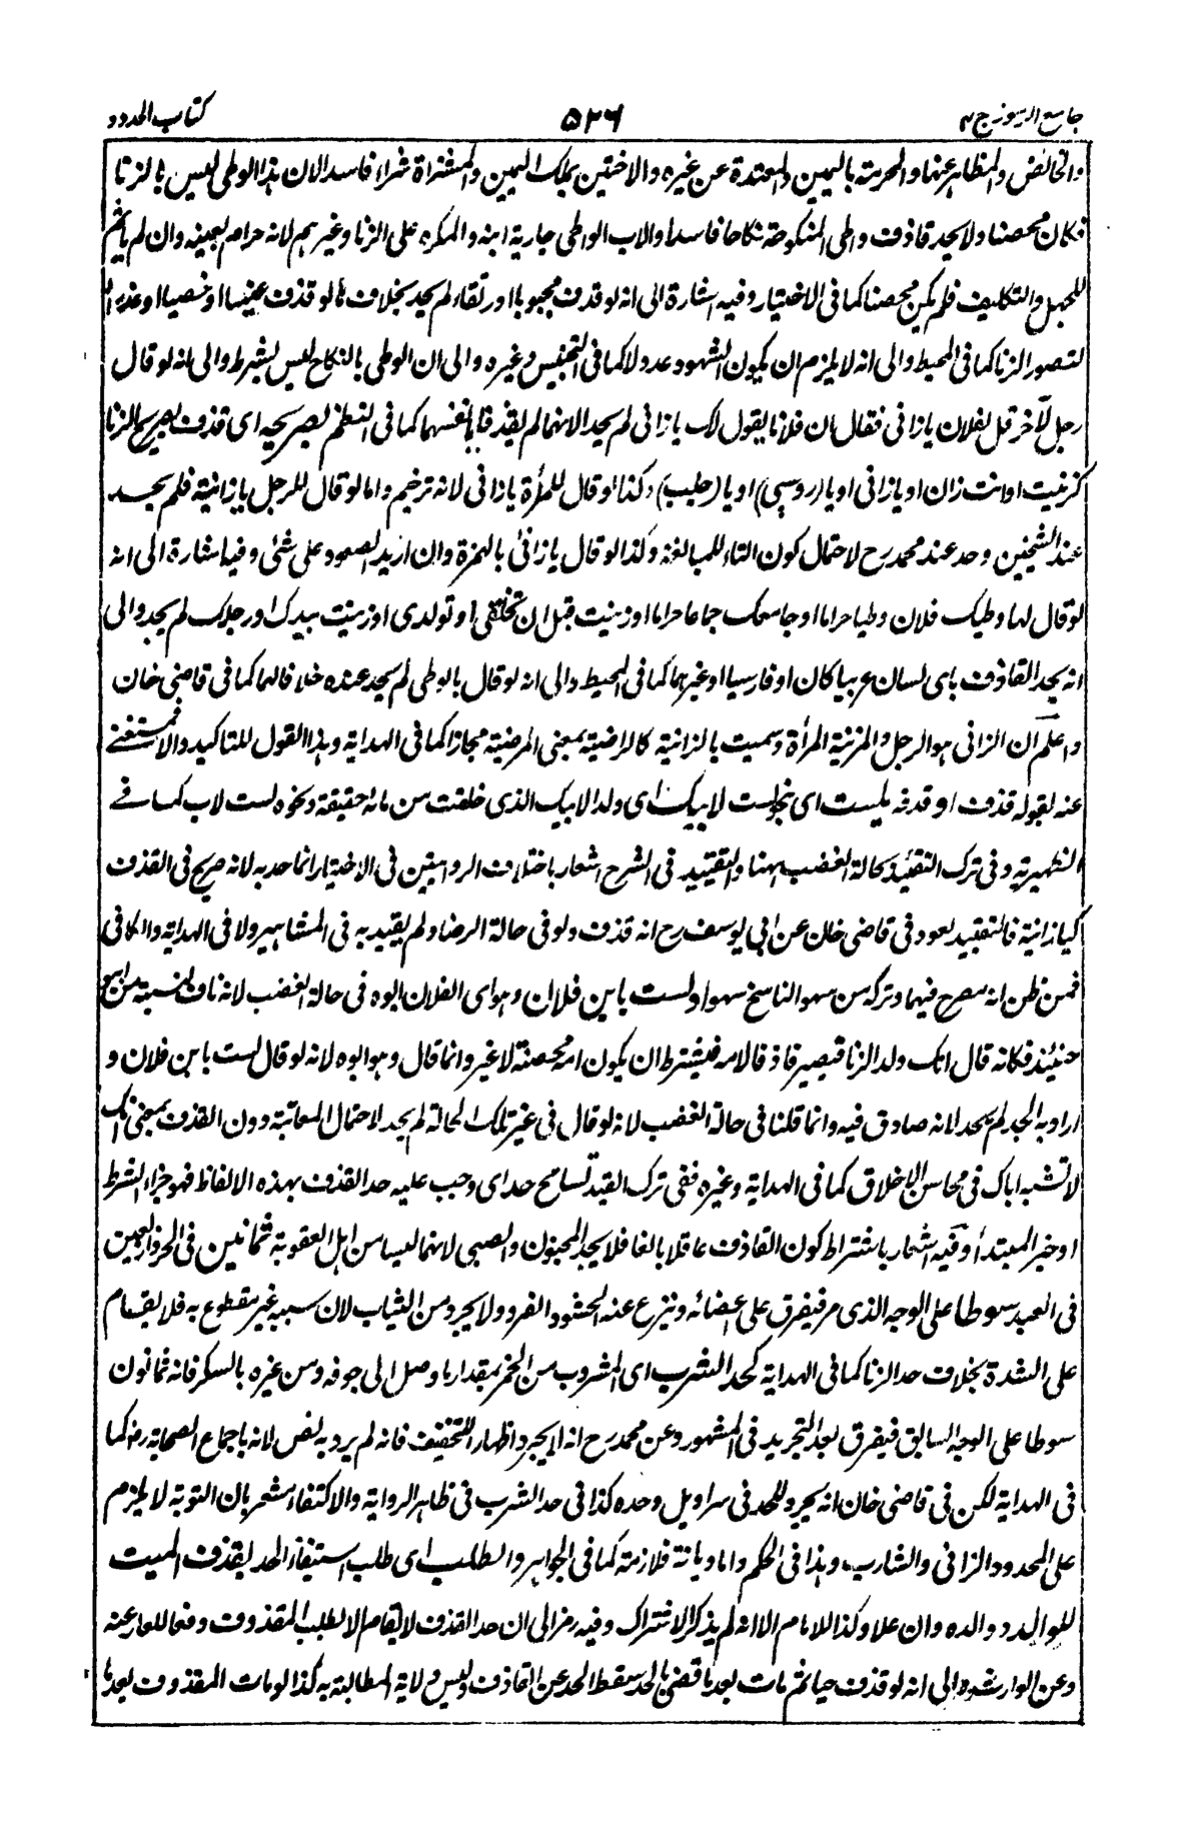 جامع الرموز ج ۲
۵۲۶
كتاب الحدود
والحائض والمظاهر عنها والمحرمة باليمين والمعتدة عن غيره والاختين بملك اليمين والمشتراة شراء فاسدا لان هذا الوطى ليس بالزنا
فكان محصنا ولا يحد قاذف واطى المنكوحة نكاحا فاسدا والاب الواطى جارية ابنه والمكره على الزنا وغيرهم لانه حرام لعينه وان لم يأثم
للجهل والتكليف فلم يكن محصنا كما فى الاختيار وفيه اشارة الى انه لو قذف مجبوبا او رتقاء لم يحد بخلاف ما لو قذف عنينا او خصيا او عذراء
لتصور الزنا كما فى المحيط والى انه لا يلزم ان يكون الشهود عدولا كما فى التجنيس وغيره والى ان الوطى بالنكاح ليس بشرط والى انه لو قال
رجل لآخر قل لفلان يا زانى فقال ان فلانا يقول لك يا زانى لم يحد لانهما لم يقذفا بانفسهما كما فى النظم بصريحه اى قذف بصريح الزنا
كزنيت او انت زان او يا زانى او يا (روسپى) او يا (جلب) وكذا لو قال للمرأة يا زانى لانه ترخيم واما لو قال للرجل يا زانية فلم يحد
عند الشيخين وحد عند محمد رح لاحتمال كون التاء للمبالغة وكذا لو قال يا زانئ بالهمزة وان اريد الصعود على شئ وفيه اشارة الى انه
لو قال لها وطيك فلان وطيا حراما او جامعك جماعا حراما او زنيت قبل ان تخلقى او تولدى او زنيت بيدك او رجلك لم يحد والى
انه يحد القاذف باى لسان عربيا كان او فارسيا او غيرهما كما فى المحيط والى انه لو قال يا لوطى لم يحد عنده خلافا لهما كما فى قاضى خان
واعلم ان الزانى هو الرجل والمزنية المرأة وسميت بالزانية كالراضية بمعنى المرضية مجازا كما فى الهداية وهذا القول للتاكيد والا فمستغنى
عنه لقوله قذف او قدفه بلست اى بنحو لست لابيك اى ولد لابيك الذى خلقت من مائه حقيقة ونحوه لست لاب كما فى
الظهيرية وفى ترك التقييد بحالة الغضب ههنا والتقييد فى الشرح اشعار باختلاف الروايتين فى الاختيار انما حد به لانه صريح فى القذف
كيا زانية فالتقييد لعود فى قاضى خان عن ابى يوسف رح انه قذف ولو فى حالة الرضا ولم يقيد به فى المشاهير ولا فى الهداية والكافى
فمن ظن انه مصرح فيهما وتركه من سهو الناسخ سها او لست بابن فلان وهو اى الفلان ابوه فى حالة الغضب لانه ناف لنسبته من ابيه
حينئذ فكانه قال انك ولد الزنا فيصير قاذفا لامه فيشترط ان يكون امه محصنة لا غير وانما قال وهو ابوه لانه لو قال لست بابن فلان و
اراد به الجد لم يحد لانه صادق فيه وانما قلنا فى حالة الغضب لانه لو قال فى غير تلك الحالة لم يحد لاحتمال المعاتبة دون القذف بمعنى انك
لا تشبه اباك فى محاسن الاخلاق كما فى الهداية وغيره ففى ترك القيد تسامح حد اى وجب عليه حد القذف بهذه الالفاظ فهو جزاء الشرط
او خبر المبتدأ وفيه اشعار باشتراط كون القاذف عاقلا بالغا فلا يحد المجنون والصبى لانهما ليسا من اهل العقوبة ثمانين فى الحر واربعين
فى العبد سوطا على الوجه الذى مر فيفرق على اعضائه وينزع عنه الحشو والفرو ولا يجرد من الثياب لان سببه غير مقطوع به فلا يقام
على الشدة بخلاف حد الزنا كما فى الهداية كحد الشرب اى المشروب من الخمر بمقدار ما وصل الى جوفه ومن غيره بالسكر فانه ثمانون
سوطا على الوجه السابق فيفرق بعد التجريد فى المشهور وعن محمد رح انه لا يجرد اظهارا للتخفيف فانه لم يرد به نص لانه باجماع الصحابة رض كما
فى الهداية لكن فى قاضى خان انه يجرد للحد فى سراويل وحده كذا فى حد الشرب فى ظاهر الرواية والاكتفاء مشعر بان التوبة لا يلزم
على المحدود الزانى والشارب وهذا فى الحكم واما ديانة فلازمة كما فى الجواهر والطلب اى طلب استيفاء الحد بقذف الميت
للوالد ووالده وان علا وكذا للام الا انه لم يذكر لاشتراك وفيه رمز الى ان حد القذف لا يقام الا بطلب المقذوف دفعا للعار عنه
وعن الوارث والى انه لو قذف حيا ثم مات بعد ما قضى بالحد سقط الحد عن القاذف وليس ولاية المطالبة به كذا لو مات المقذوف بعد ما